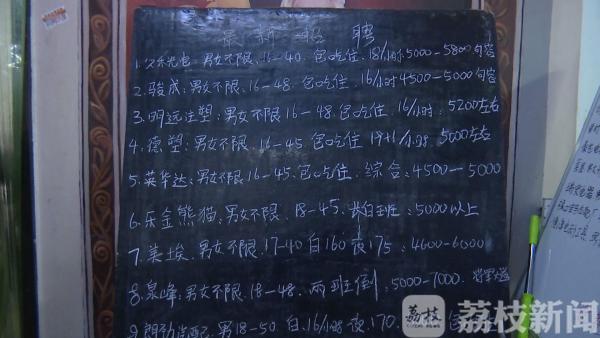 最新招聘
光电：男女不限.16-40.包吃住.18/小时.5000-5800句容
2.骏成：男女不限.16-48.包吃住.16/小时4500-5000句容
3.明远注塑：男女不限16-48.包吃住.16/小时：5200左右
4.德塑：男女不限.16-45.包吃住19+1/小时.5000左右
5.英华达：男女不限16-45.包吃住.综合：4500-5000
6.乐金熊猫：男女不限.18-45.长白班：5000以上
7.美埃.男女不限.17-40白160夜175：4600-6000
8.泉峰：男女不限.18-48.两班倒.5000-7000.将军大道
9.朗劲 男18-50.白.16/小时夜.170.
荔枝
荔枝新闻